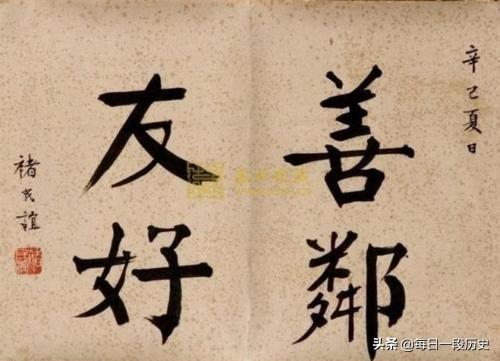 辛巳夏日
善鄰
友好
褚民誼
头条 @每日一段历史